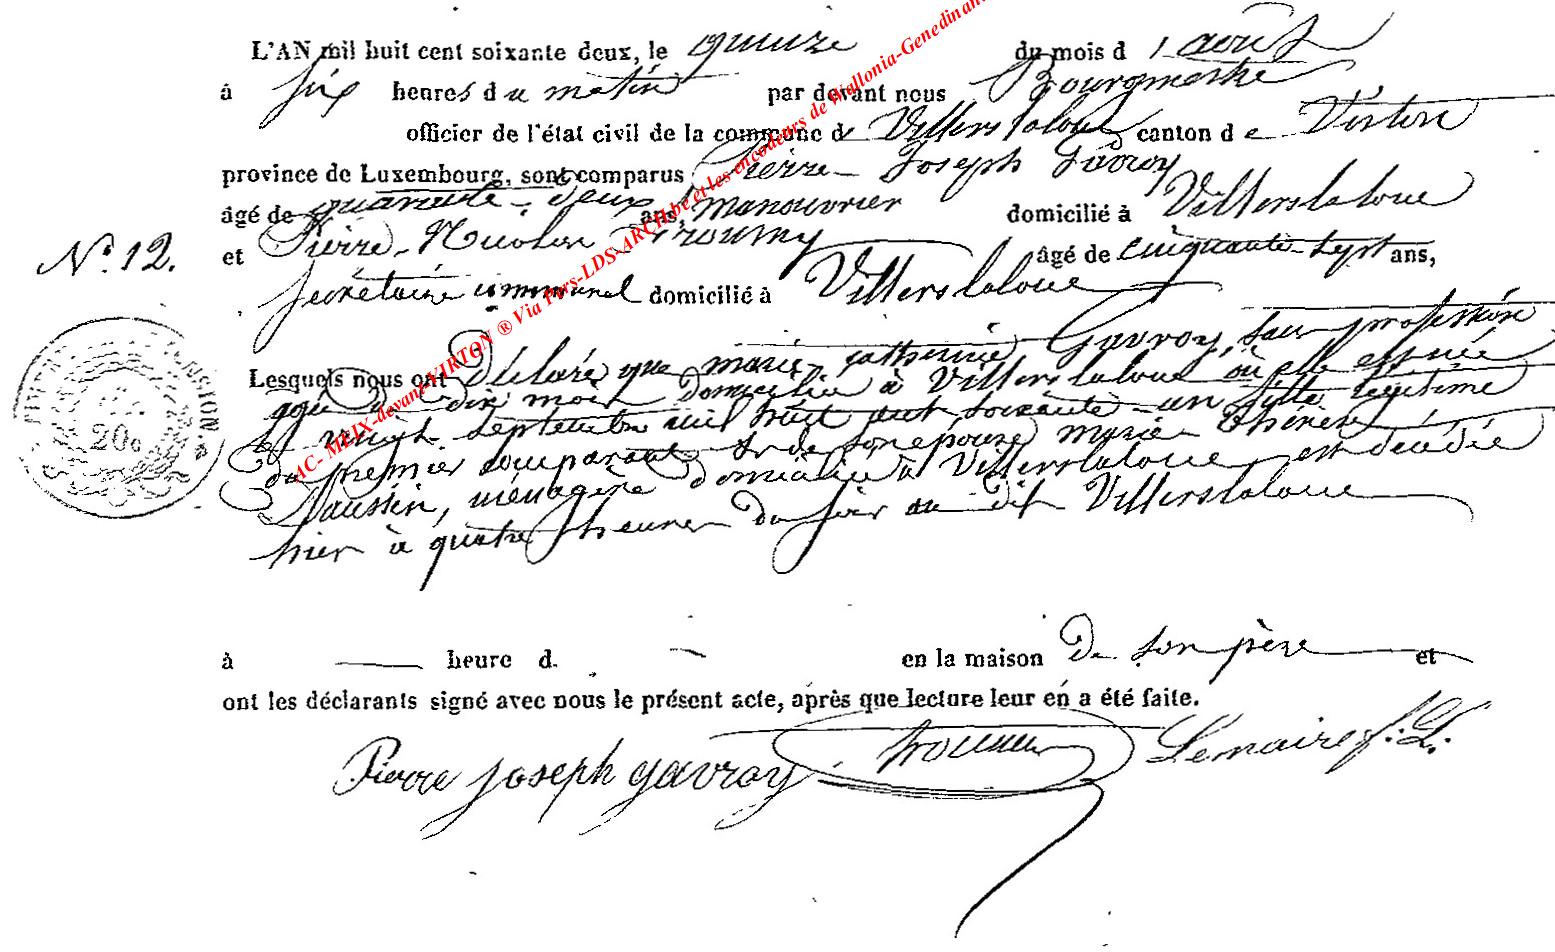 L'AN mil huit cent soixante deux, le quinze du mois d'août
à six heures du matin par devant nous Bourgmestre
officier de l'état civil de la commune de Villerslaloue canton de Virton
province de Luxembourg, sont comparus Pierre-Joseph Gavroy
âgé de quarante-deux ans, manouvrier domicilié à Villerslaloue
et Pierre-Nicolas âgé de cinquante-sept ans,
N° 12.
secrétaire communal domicilié à Villerslaloue
Lesquels nous ont déclaré que marie catherine Gavroy, sans profession
agée de dix mois domiciliée à Villerslaloue où elle est née
le vingt septembre mil huit cent soixante-un fille légitime
du premier comparant et de son épouse marie-thérèse
Naussin, ménagère domiciliée à Villerslaloue est décédée
hier à quatre heures du soir au dit Villerslaloue
à heure d. en la maison de son père et
ont les déclarants signé avec nous le présent acte, après que lecture leur en a été faite.
Pierre joseph gavroy Lemaire f. L.
20c
AC- MEIX-devant-VIRTON ® Via Pors-LDS-ARCH.be et les encodeurs de Wallonia-Genedinant